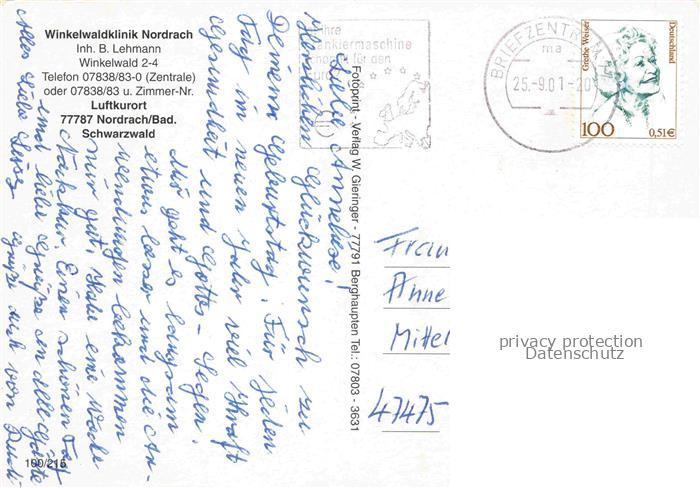 Winkelwaldklinik Nordrach
Inh. B. Lehmann
Winkelwald 2-4
Telefon 07838/83-0 (Zentrale)
oder 07838/83 u. Zimmer-Nr.
Luftkurort
77787 Nordrach/Bad.
Schwarzwald
100/215
Liebe Anneliese!
Herzlichen Glückwunsch zu
Deinem Geburtstag. Für jeden
Tag im neuen Jahr viel Kraft
Gesundheit und Gottes-Segen.
Mir geht es langsam
etwas besser und die An-
wendungen bekommen
mir gut. Habe eine Woche
Nachkur. Einen schönen Tag
und liebe Grüße an alle Gäste
Alles Liebe Grüße auch von
Fotoprint - Verlag W. Gieringer - 77791 Berghaupten Tel.: 07803 - 3631
BRIEFZENTRUM
ma
25.-9.01-20
Grethe Weiser
Deutschland
100
0,51€
Frau
Anne
Mittel
47475
privacy protection
Datenschutz